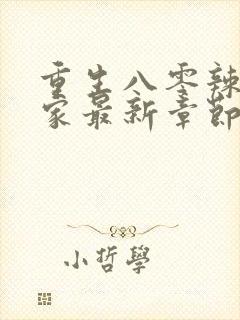 重生八零辣
家最新章節
小哲學